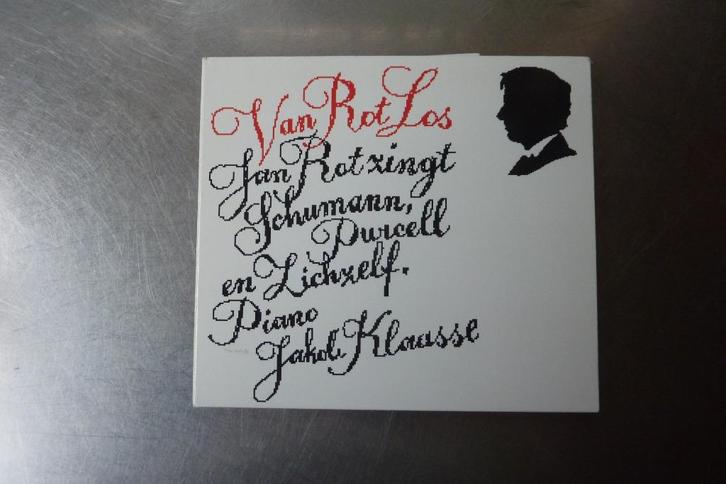 Van Rot Los
Jan Rot zingt
Schumann,
Purcell
en Zichzelf.
Piano
Jakob Klaasse